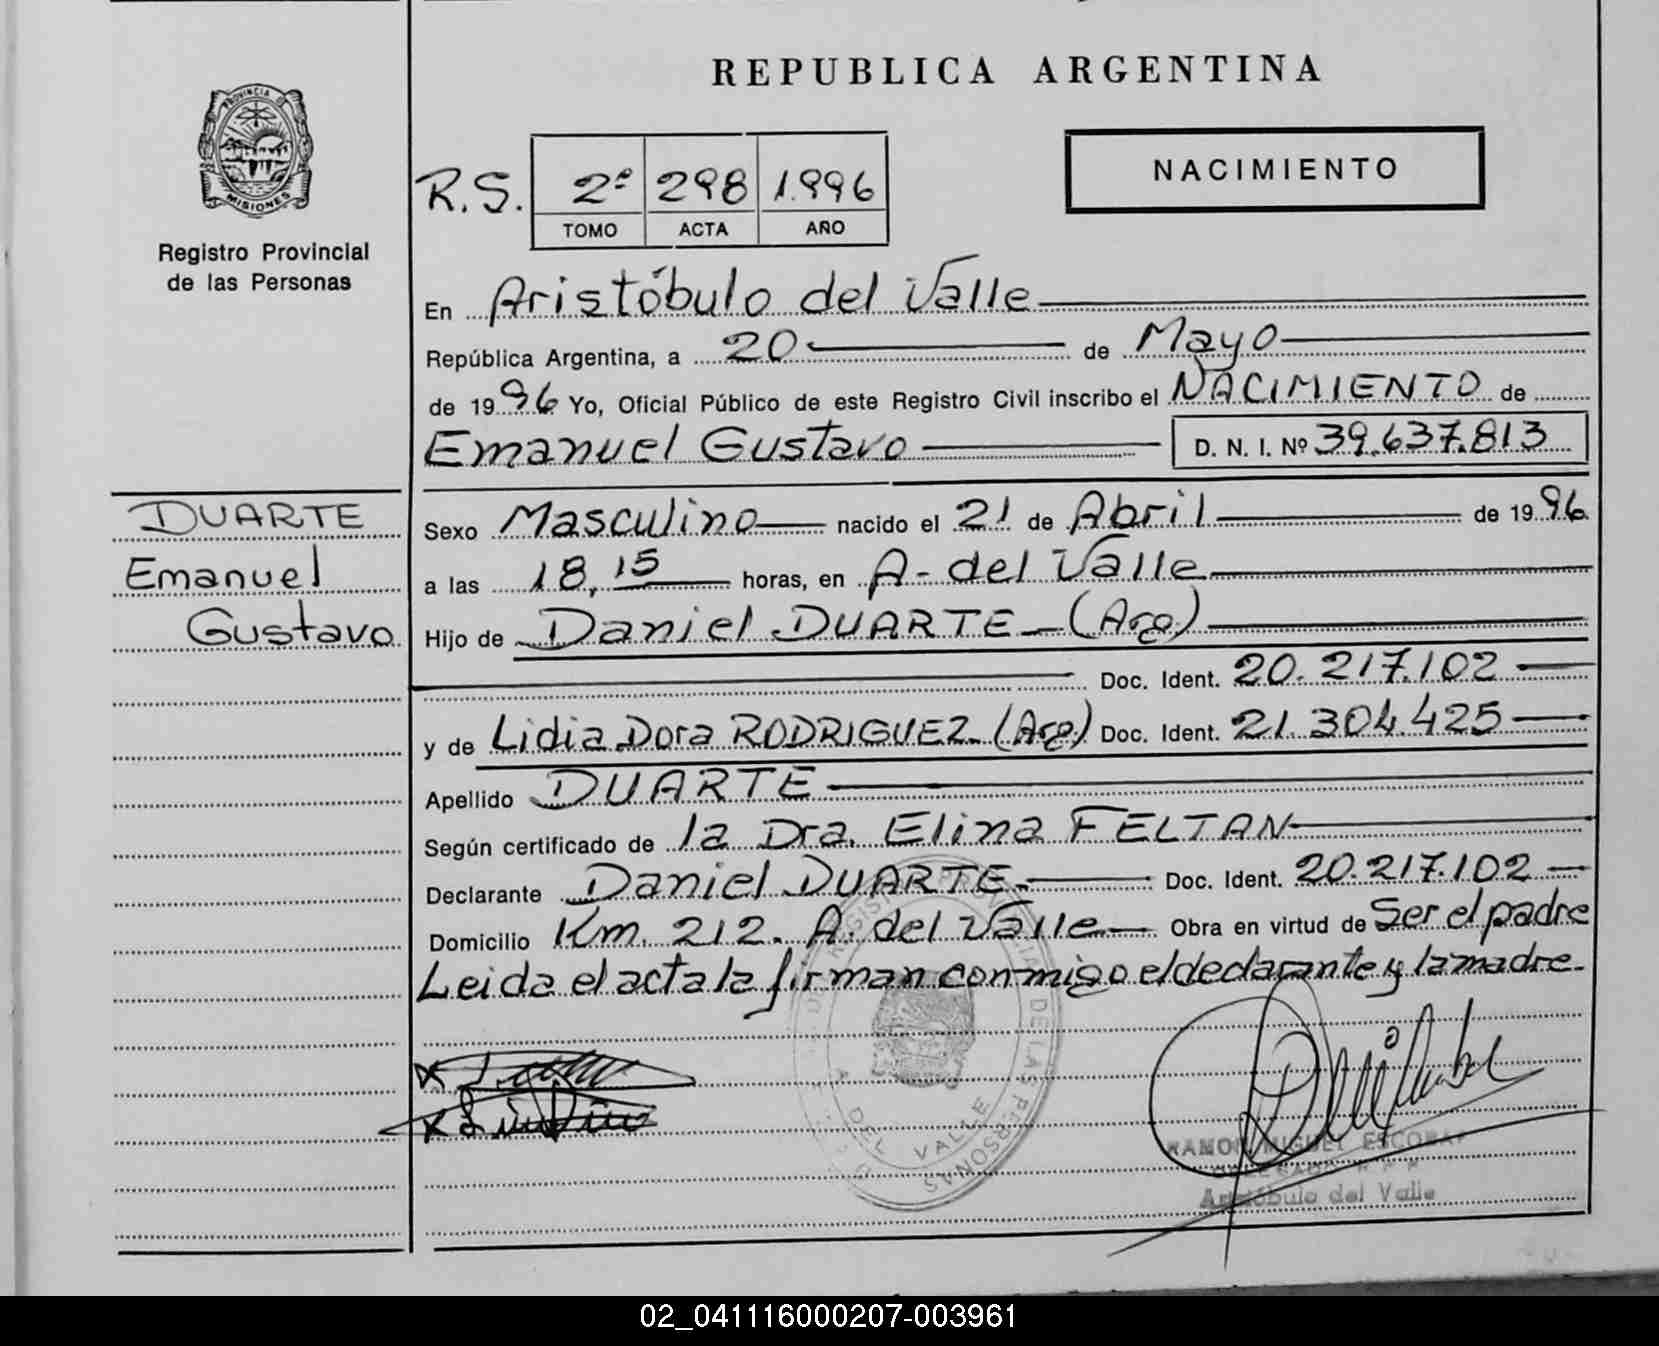 REPUBLICA ARGENTINA
PROVINCIA DE
MISIONES
Registro Provincial
de las Personas
NACIMIENTO
R.S. 2º 298 1.996
TOMO ACTA AÑO
En Aristóbulo del Valle
República Argentina, a 20 de Mayo
de 1996 Yo, Oficial Público de este Registro Civil inscribo el NACIMIENTO de
Emanuel Gustavo D. N. I. Nº 39.637.813
DUARTE
Emanuel
Gustavo
Sexo Masculino nacido el 21 de Abril de 1996
a las 18,15 horas, en A- del Valle
Hijo de Daniel DUARTE - (Arg.)
Doc. Ident. 20.217.102
y de Lidia Dora RODRIGUEZ - (Arg.) Doc. Ident. 21.304.425
Apellido DUARTE
Según certificado de la Dra. Elina FELTAN
Declarante Daniel DUARTE.- Doc. Ident. 20.217.102
Domicilio Km. 212. A. del Valle Obra en virtud de Ser el padre
Leida el acta la firman conmigo el declarante y la madre.
DE LAS PERSONAS
DEL VALLE
RAMON MIGUEL ESCOBAR
Aristóbulo del Valle
02_041116000207-003961